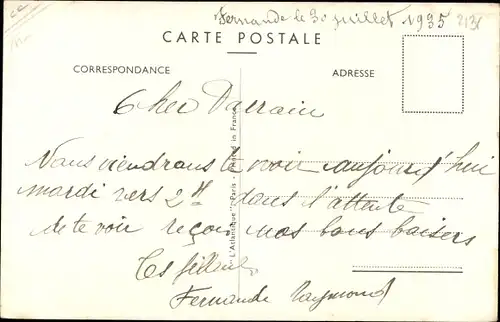 Fernande le 30 juillet 1935
CARTE POSTALE
CORRESPONDANCE
ADRESSE
Cher Parrain
Nous viendrons te voir aujourd'hui
mardi vers 2H dans l'attente
de te voir reçois nos bons baisers
Tes filleuls
Fernande Raymond
"L'Atlantique", Paris - Printed in France